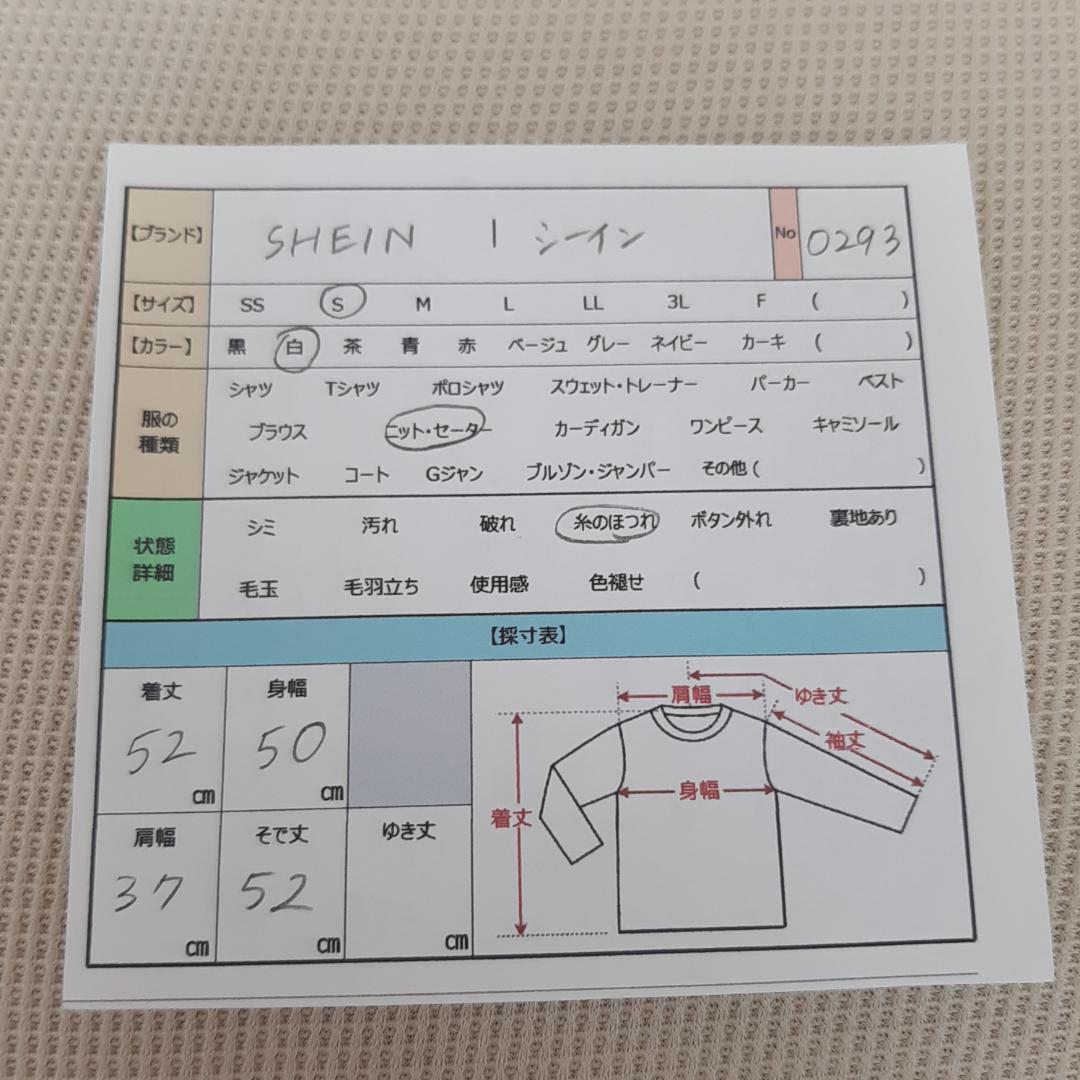 【ブランド】 SHEIN | シーイン No 0293
【サイズ】 SS S M L LL 3L F ( )
【カラー】 黒 白 茶 青 赤 ベージュ グレー ネイビー カーキ ( )
服の種類
シャツ Tシャツ ポロシャツ スウェット・トレーナー パーカー ベスト
ブラウス ニット・セーター カーディガン ワンピース キャミソール
ジャケット コート Gジャン ブルゾン・ジャンパー その他 ( )
状態詳細
シミ 汚れ 破れ 糸のほつれ ボタン外れ 裏地あり
毛玉 毛羽立ち 使用感 色褪せ ( )
【採寸表】
着丈 52 cm
身幅 50 cm
肩幅 37 cm
そで丈 52 cm
ゆき丈 cm
肩幅
ゆき丈
袖丈
身幅
着丈